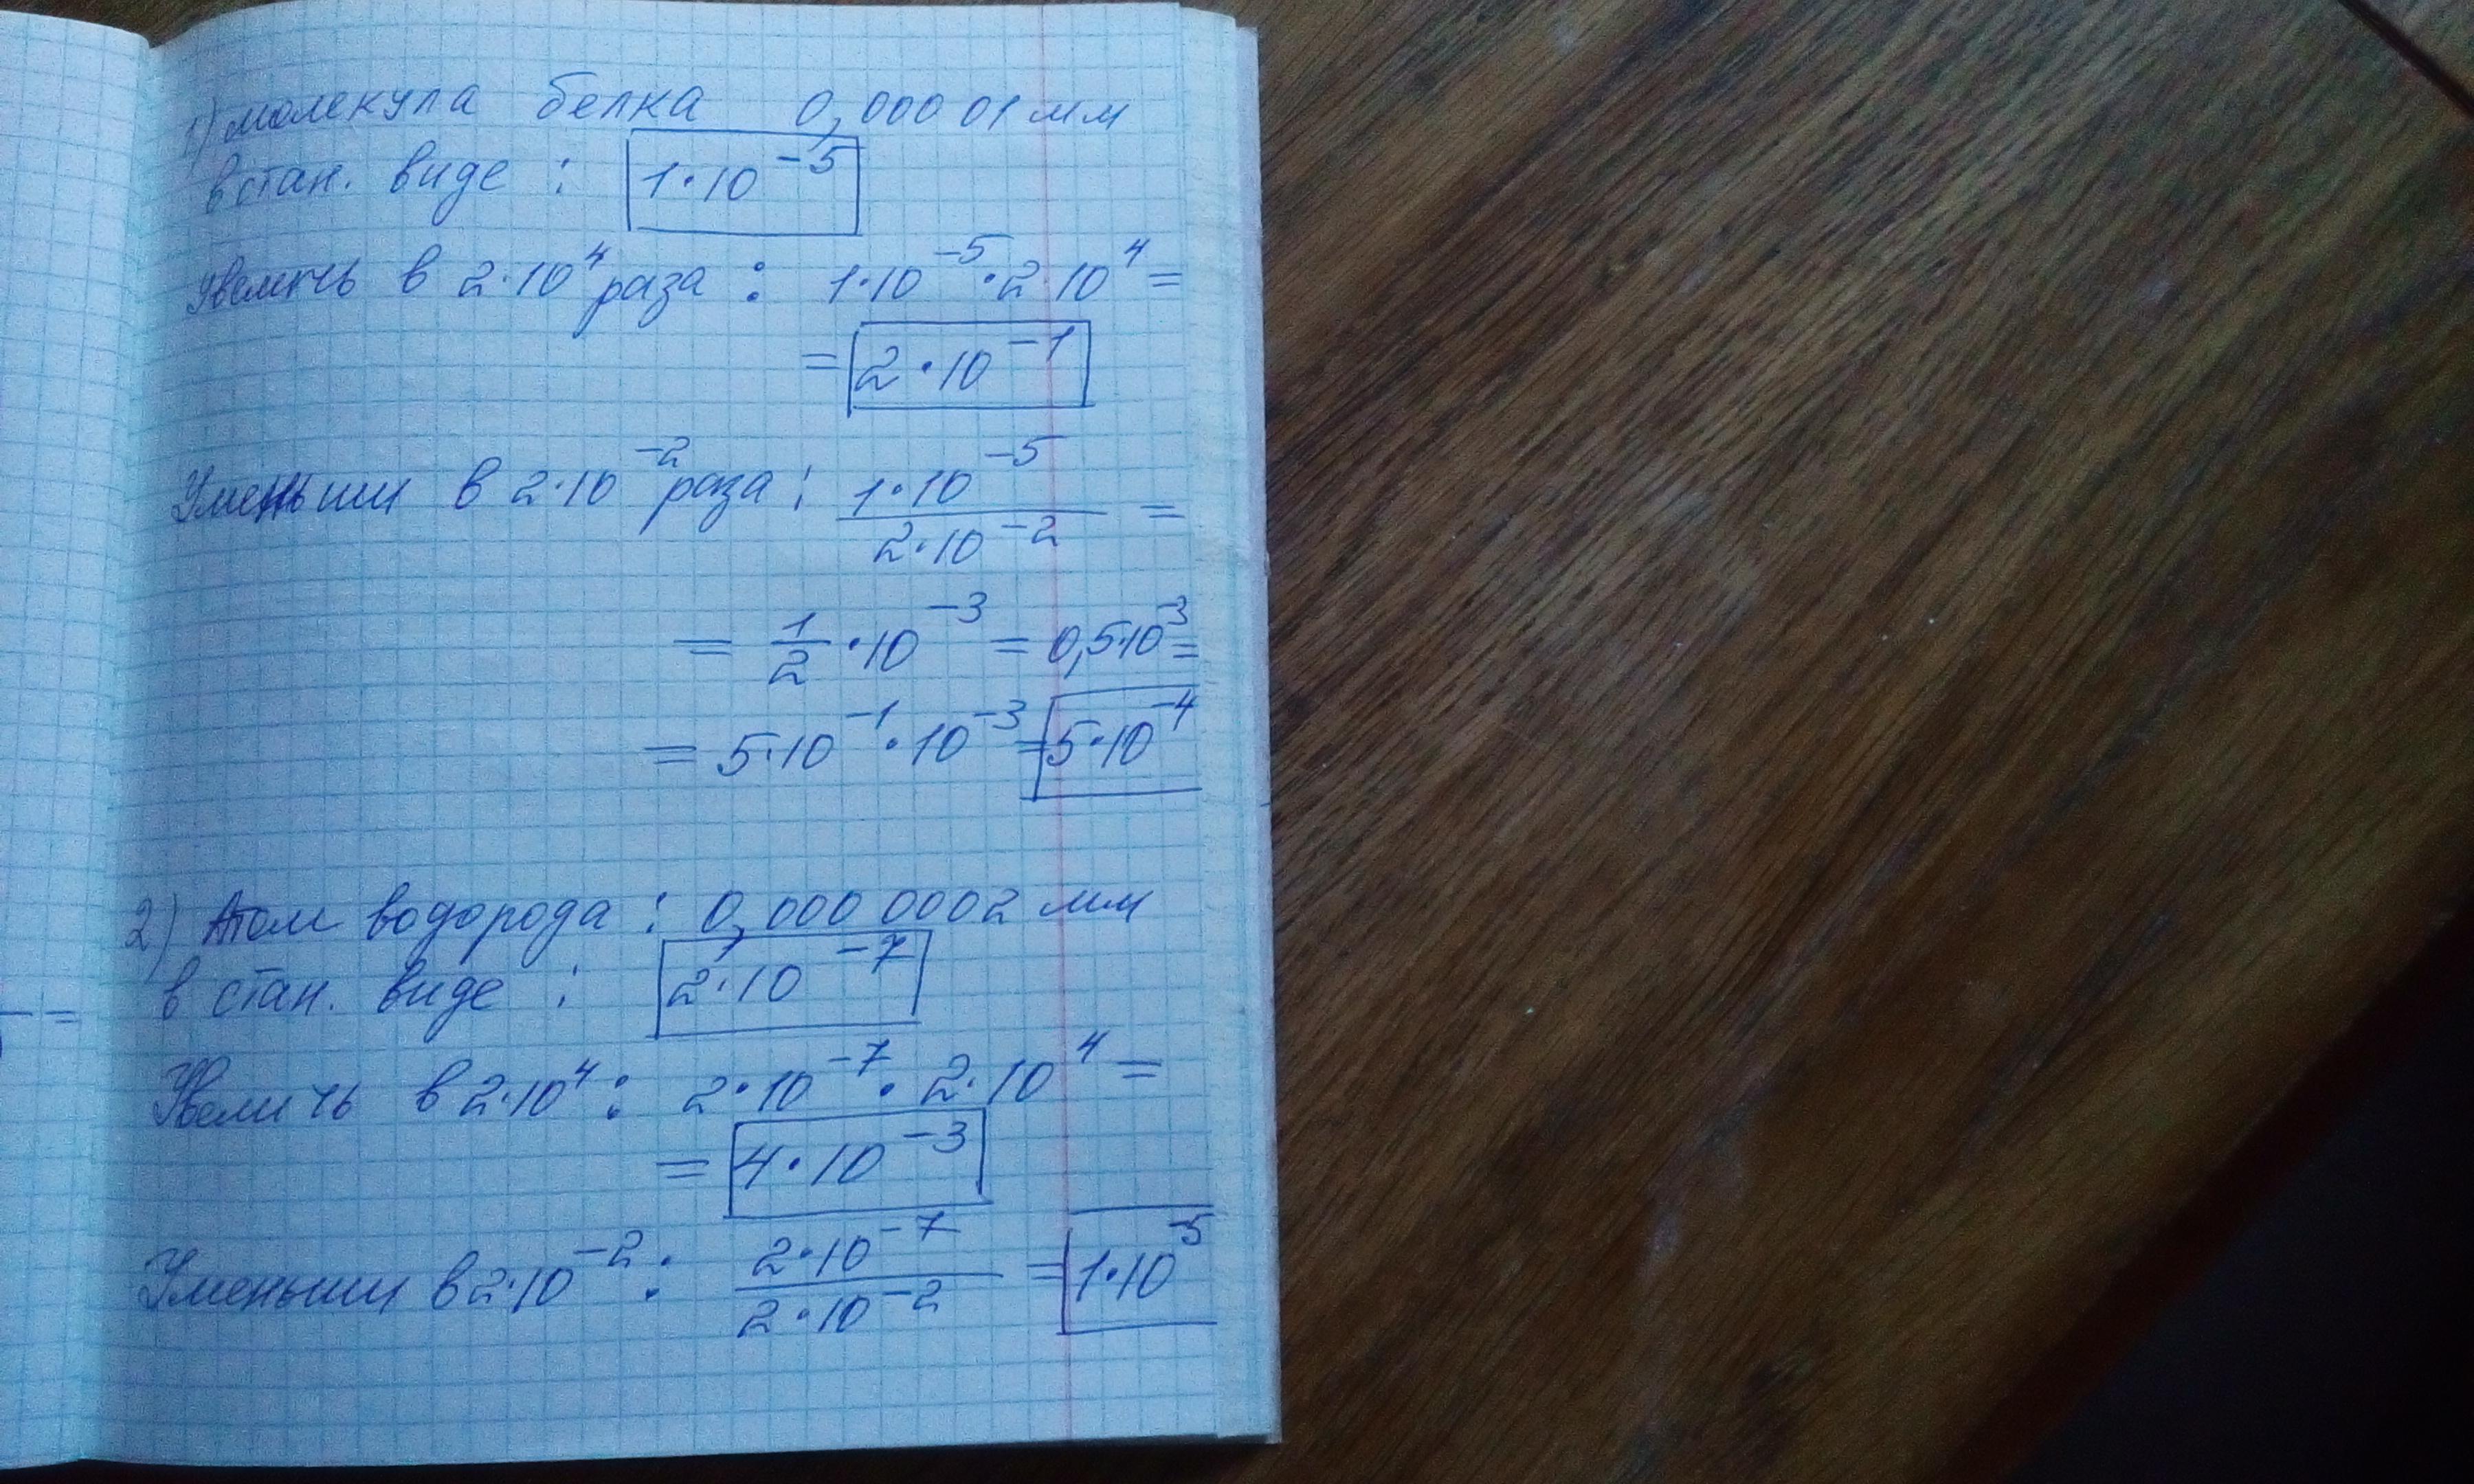 1) молекула белка 0,000 01 мм
в стан. виде : 1·10⁻⁵
Увеличь в 2·10⁴ раза : 1·10⁻⁵·2·10⁴ =
= 2·10⁻¹
Уменьши в 2·10⁻² раза : 1·10⁻⁵ / 2·10⁻² =
= 1/2 · 10⁻³ = 0,5·10⁻³ =
= 5·10⁻¹ · 10⁻³ = 5·10⁻⁴
2) Атом водорода : 0,000 0002 мм
в стан. виде : 2·10⁻⁷
Увеличь в 2·10⁴ : 2·10⁻⁷ · 2·10⁴ =
= 4·10⁻³
Уменьши в 2·10⁻² : 2·10⁻⁷ / 2·10⁻² = 1·10⁻⁵